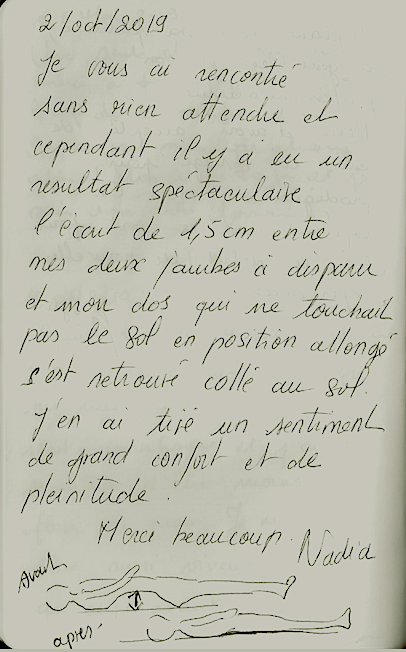 2/oct/2019
Je vous ai rencontré
sans rien attendre et
cependant il y a eu un
resultat spéctaculaire
l'écart de 1,5 cm entre
mes deux jambes a disparu
et mon dos qui ne touchait
pas le sol en position allongé
s'est retrouvé collé au sol.
J'en ai tiré un sentiment
de grand confort et de
pleinitude.
Merci beaucoup. Nadia
Avant
après